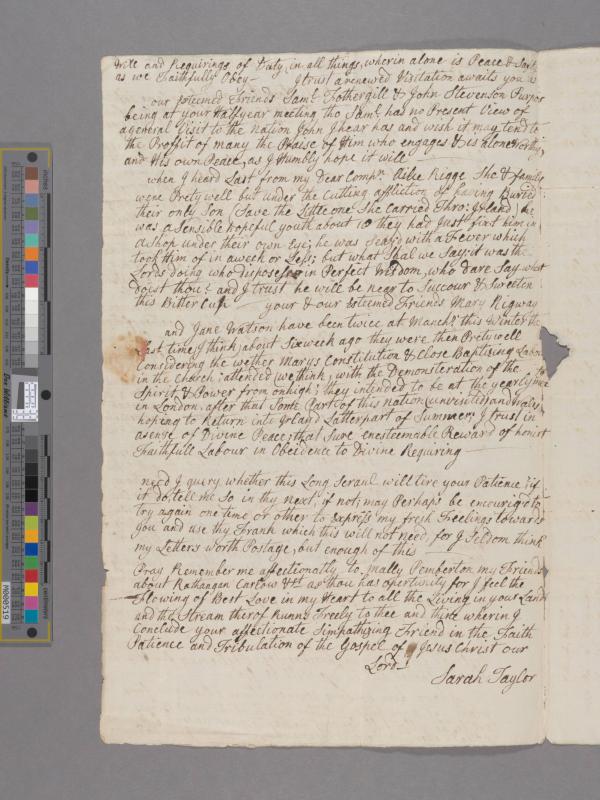 and Requirings of Duty, in all things, wherein alone is Peace & Safty
as we Faithfully Obey – I trust a renewed Visitation awaits you as
our Esteemed Friends Saml Fothergill & John Stevenson Purpos
being at your Halfyear meeting tho Saml has no Present View of
a general Visit to the Nation John I hear has and wish it may tend to
the Proffit of many the Praise of Him who engages & is alone worthy
and His own Peace, as I Humbly hope it will
when I heard Last from my Dear Compn Rebe Rigge She & family
were Prety well but under the Cutting affliction of having Buried
their only Son (Save the Little one She Carried Thro: Irland) he
was a Sensible hopeful youth about 18 they had Just fixt him in
a Shop under their own Eye; he was Seazd with a Fever which
took Him of in a week or Less; but what Shal we Say it was the
Lords doing who disposes in Perfect Wisdom, who dare Say what
doist thou: and I trust he will be near to Succour & Sweeten
this Bitter Cup – your & our Esteemed Friends Mary Rigway
and Jane Watson have been twice at Manchr this Winter the
Last time, I think, about Six week ago they were then Prety well
Considering the wether Marys Constitution & Close Baptising Labour
in the Church; attended (we think) with the Demonsteration of the
Spirit & Power from on high; they intended to be at the yearly mee
in London, after that Some Part of this nation (unvisited) and Wales
hopeing to Return into Irland Latterpart of Summer; I trust in
a sense of Divine Peace; that Sure enesteemable Reward of honest
Faithfull Labour in Obeidence to Divine Requiring
need I query whether this Long Scraul will tire your Patience; if
it do, tell me So in thy next, if not; may Perhaps be encouriged to
try again one time or other to express my fresh Feelings towards
you and use thy Frank which this will not need, for I Seldom think
my Letters worth Postage, but enough of this
Pray Remember me affectionatly to Pemberton my Friends
about Rathangan Carlow &tc as thou has opertunity for I feel the
Flowing of Best Love in my Heart to all the Living in your Land
and the Stream therof Runns Freely to thee and thine wherein I
Conclude your affectionate Simpathizing Friend in the Faith
Patience and Tribulation of the Gospel of Jesus Christ our
Lord –
Sarah Taylor
N000519